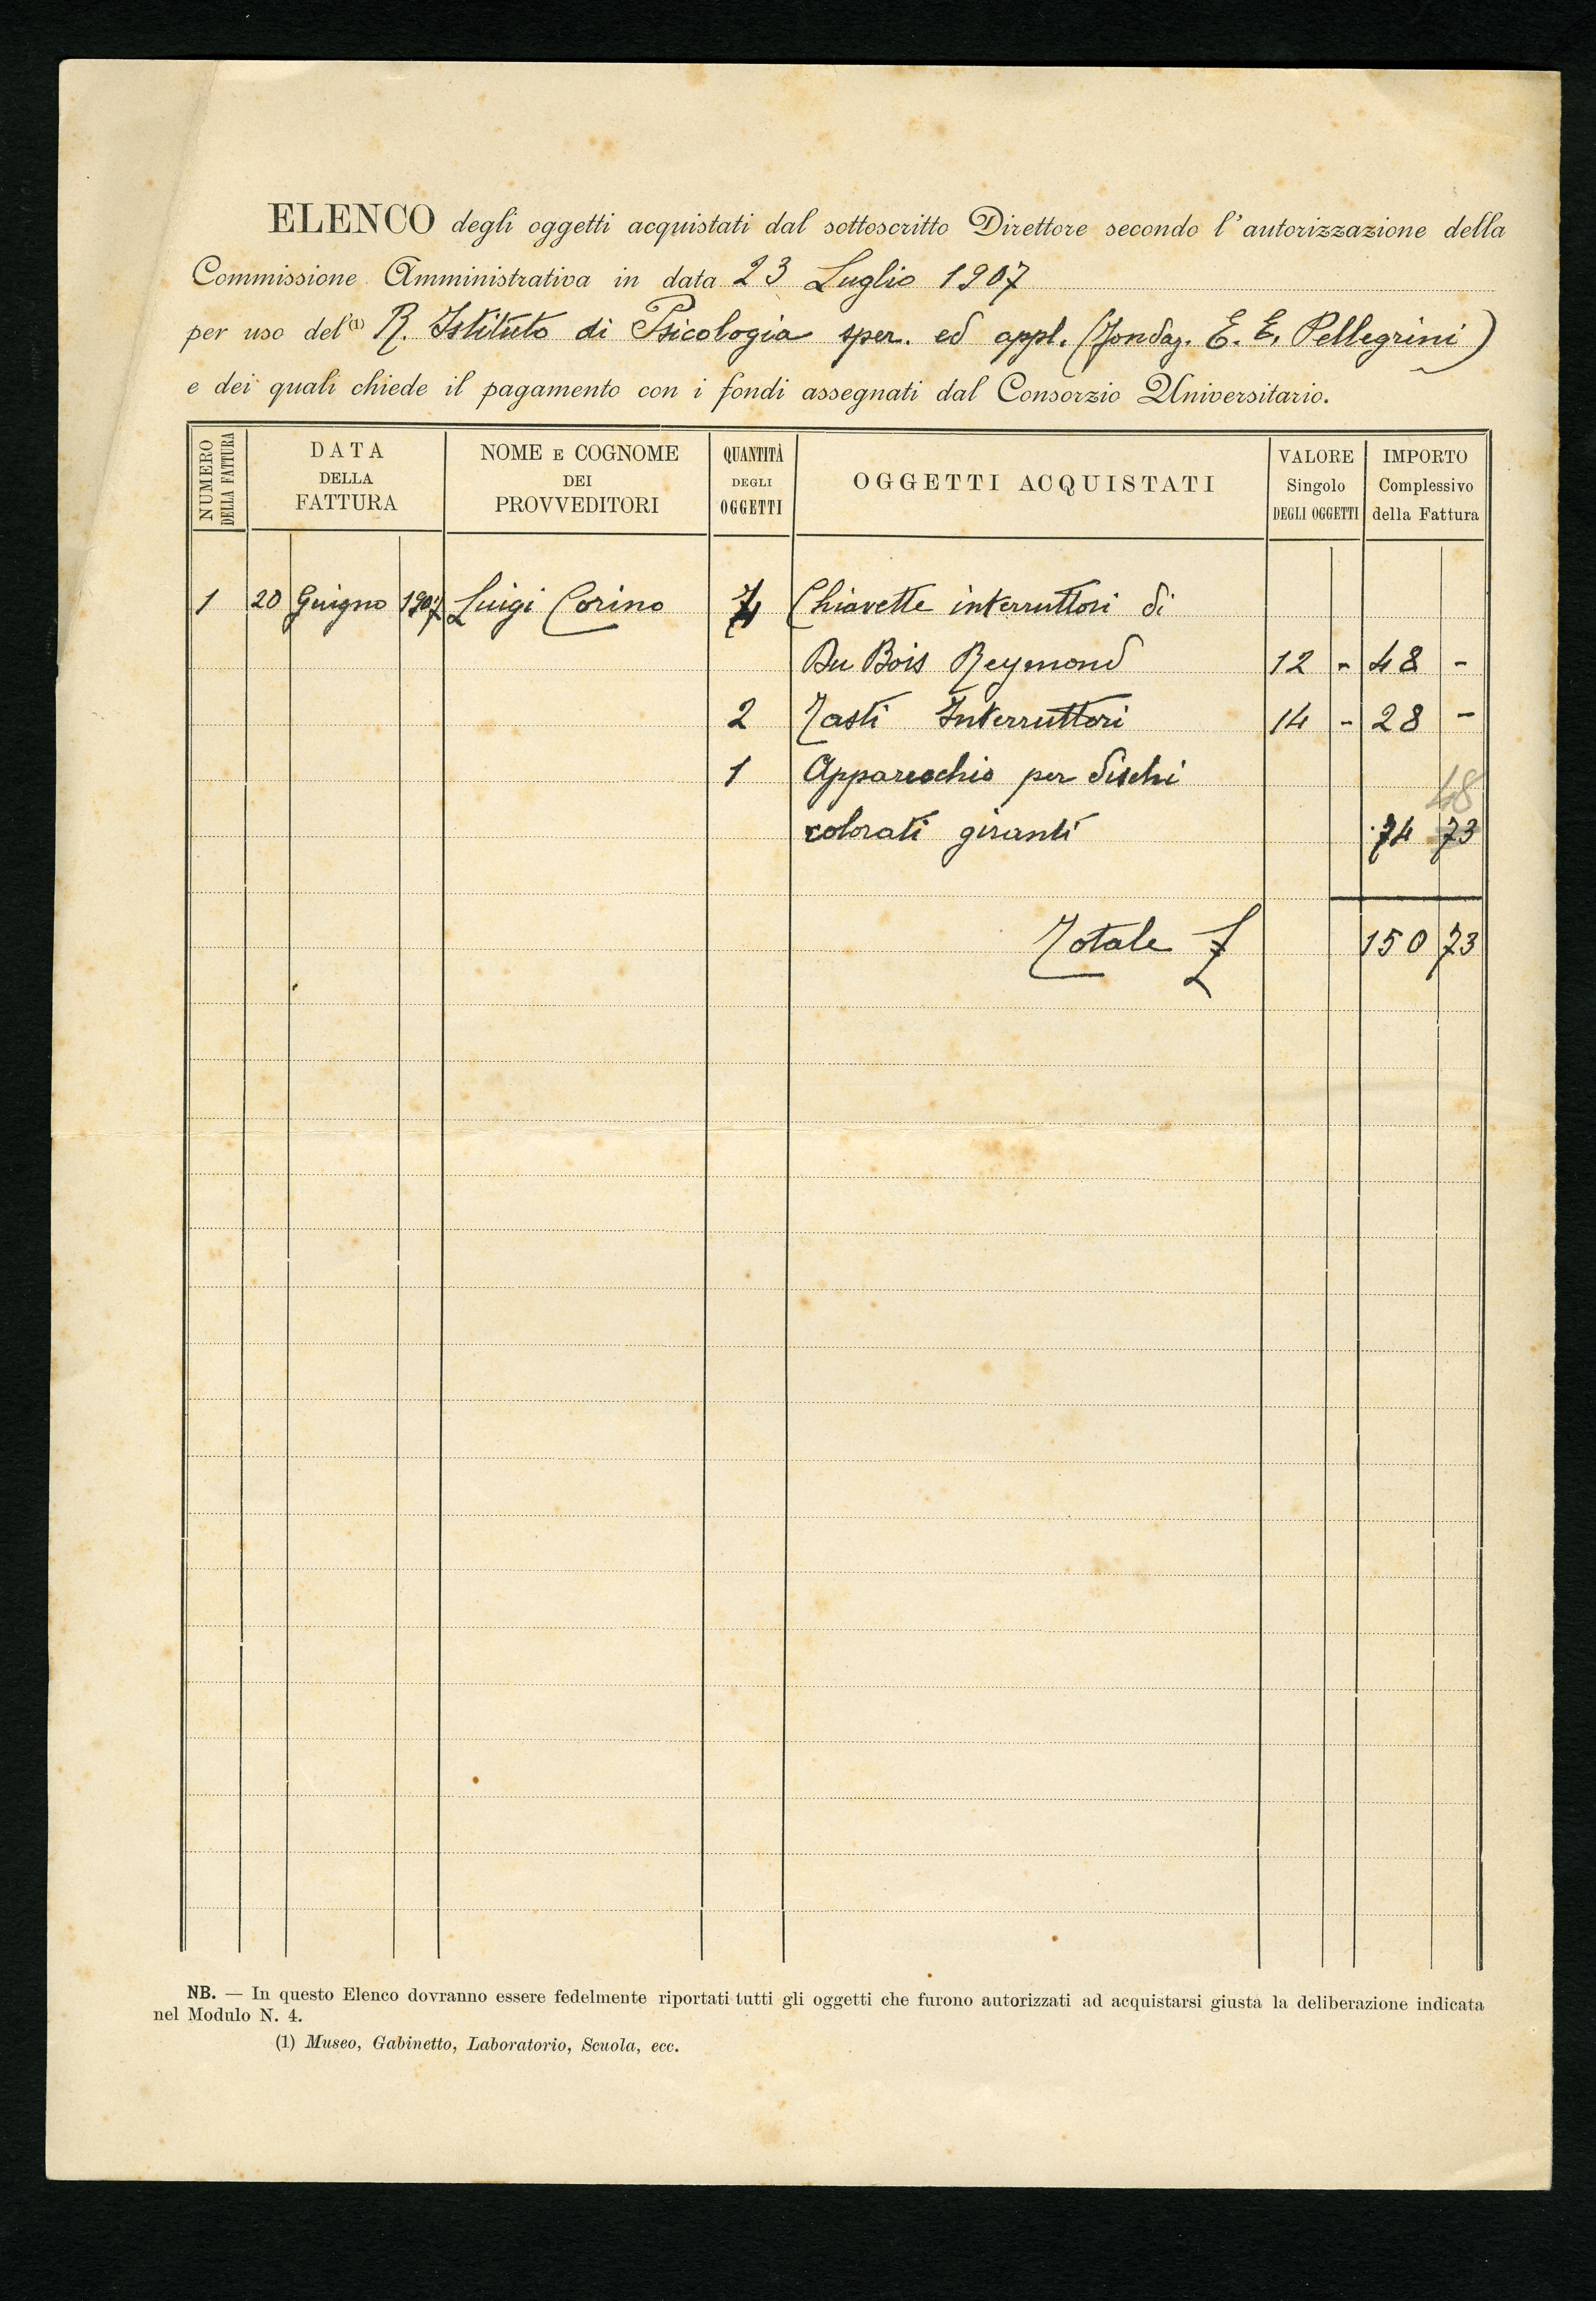 ELENCO degli oggetti acquistati dal sottoscritto Direttore secondo l'autorizzazione della
Commissione Amministrativa in data 23 Luglio 1907
per uso del(1) R. Istituto di Psicologia sper. ed appl. (fondaz. E. E. Pellegrini)
e dei quali chiede il pagamento con i fondi assegnati dal Consorzio Universitario.
NUMERO DELLA FATTURA
DATA DELLA FATTURA
NOME E COGNOME DEI PROVVEDITORI
QUANTITÀ DEGLI OGGETTI
OGGETTI ACQUISTATI
VALORE Singolo DEGLI OGGETTI
IMPORTO Complessivo della Fattura
1 20 Guigno 1907 Luigi Corino 4 Chiavette interruttori di
Du Bois Reymond 12 - 48 -
2 Tasti Interruttori 14 - 28 -
1 Apparecchio per dischi
48
colorati giranti 74 73
Totale £ 150 73
NB. — In questo Elenco dovranno essere fedelmente riportati tutti gli oggetti che furono autorizzati ad acquistarsi giusta la deliberazione indicata
nel Modulo N. 4.
(1) Museo, Gabinetto, Laboratorio, Scuola, ecc.